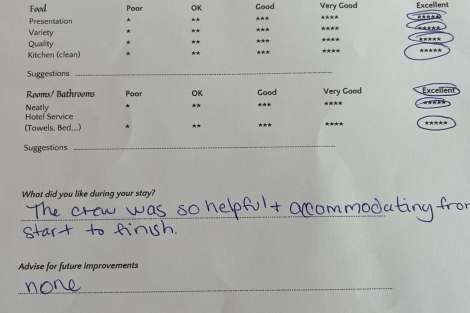 Food Poor OK Good Very Good Excellent
Presentation * ** *** **** *****
Variety * ** *** **** *****
Quality * ** *** **** *****
Kitchen (clean) * ** *** **** *****
Suggestions
Rooms/ Bathrooms Poor OK Good Very Good Excellent
Neatly * ** *** **** *****
Hotel Service
(Towels, Bed...) * ** *** **** *****
Suggestions
What did you like during your stay?
The crew was so helpful + accommodating from
start to finish.
Advise for future improvements
none